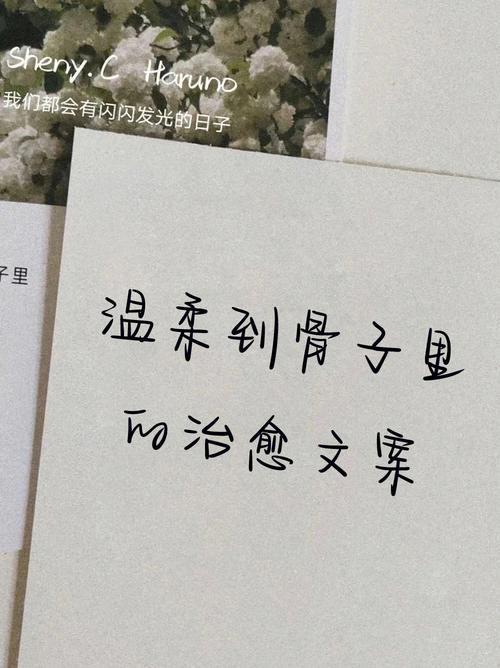 Sheny.C Haruno
我们都会有闪闪发光的日子
子里
温柔到骨子里
的治愈文案